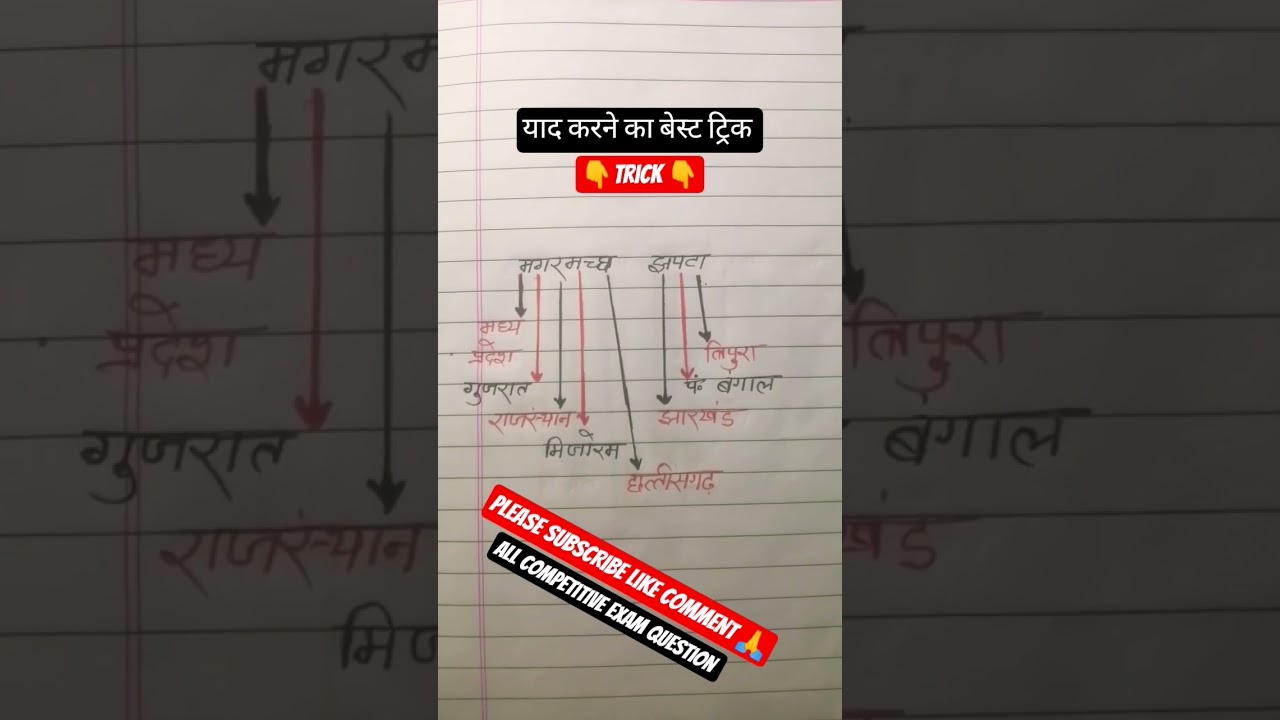 याद करने का बेस्ट ट्रिक
👇 TRICK 👇
मगरमच्छ झपटा
मध्य
प्रदेश
त्रिपुरा
गुजरात
पं॰ बंगाल
राजस्थान
झारखंड
मिजोरम
छत्तीसगढ़
PLEASE SUBSCRIBE LIKE COMMENT 🙏
ALL COMPETITIVE EXAM QUESTION
मगरम
मध्य
प्रदेश
गुजरात
राजस्थान
त्रिपुरा
बंगाल
खंड